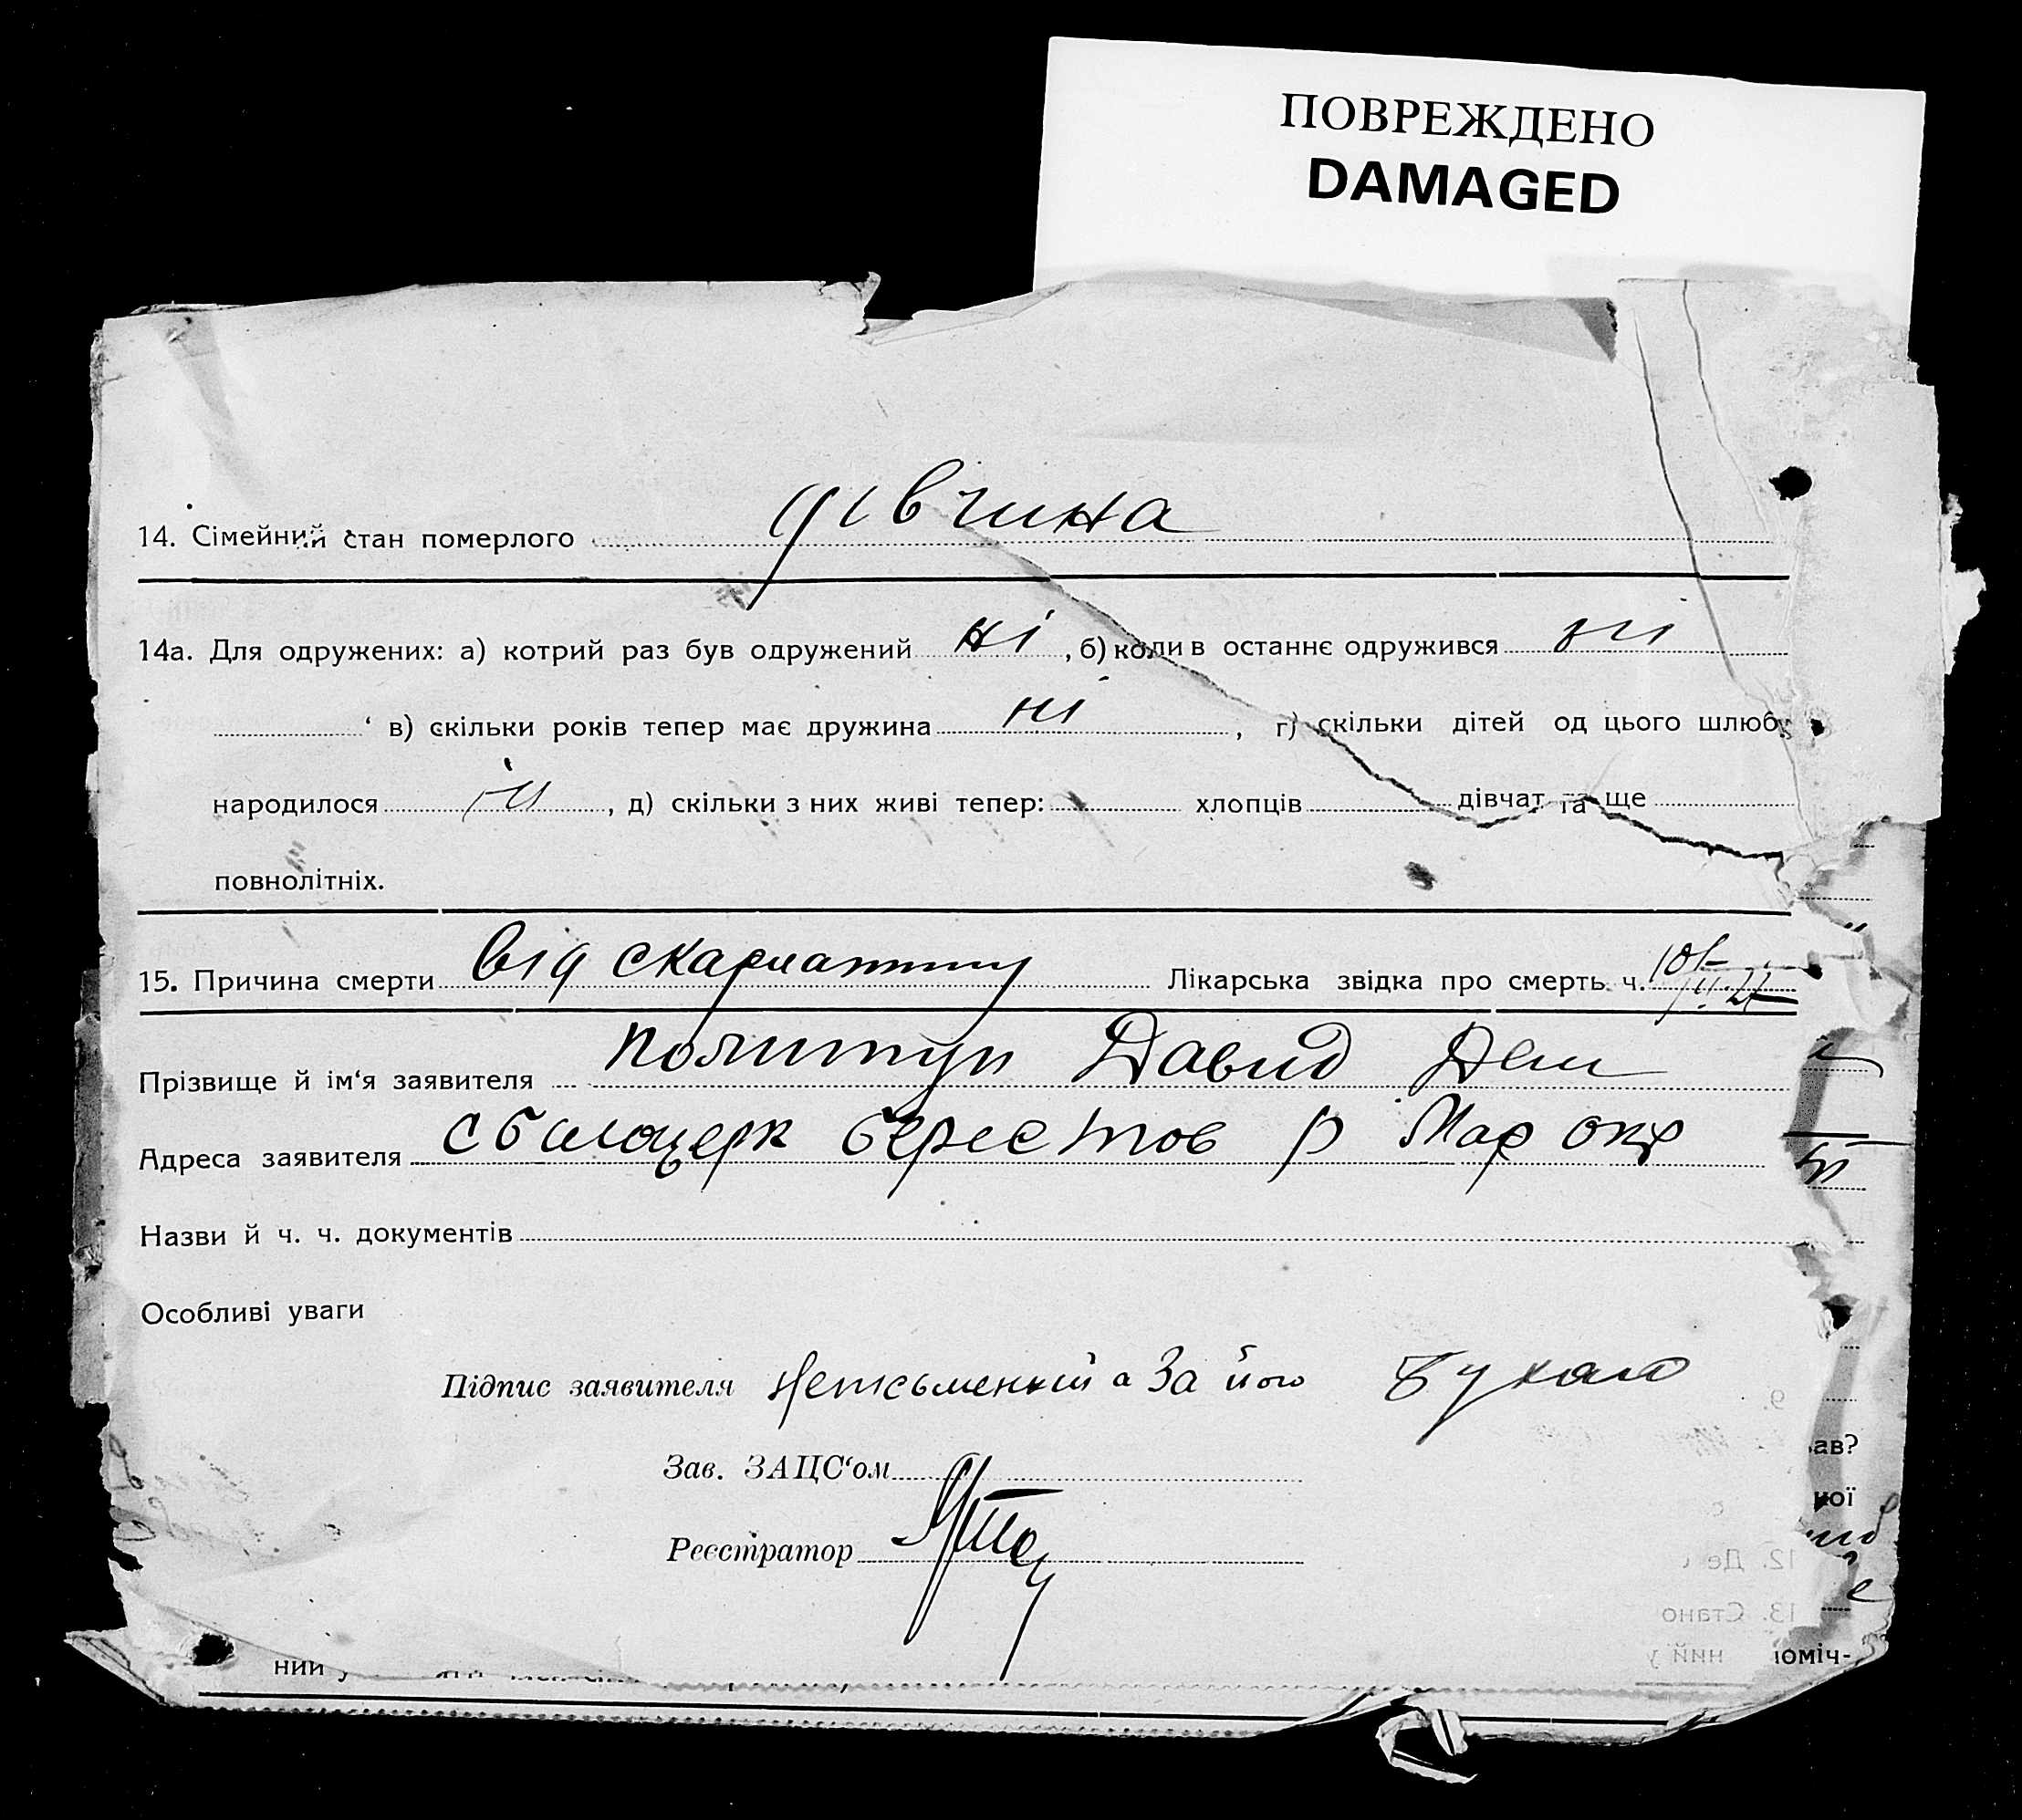 ПОВРЕЖДЕНО
DAMAGED
14. Сімейний стан померлого дівчина
14а. Для одружених: а) котрий раз був одружений ні, б) коли в останнє одружився ні
в) скільки років тепер має дружина ні, г) скільки дітей од цього шлюбу
народилося ні, д) скільки з них живі тепер: хлопців дівчат та ще
повнолітніх.
15. Причина смерти від скарлатини Лікарська звідка про смерть ч.
Прізвище й ім‘я заявителя Давид Дем
Адреса заявителя с Билоцерк Берестов р Мар окр
Назви й ч. ч. документів
Особливі уваги
Підпис заявителя а За його
Зав. ЗАЦС‘ом
Реєстратор
ав?
кої
12. Де
13. Стано
ний у
оміч-